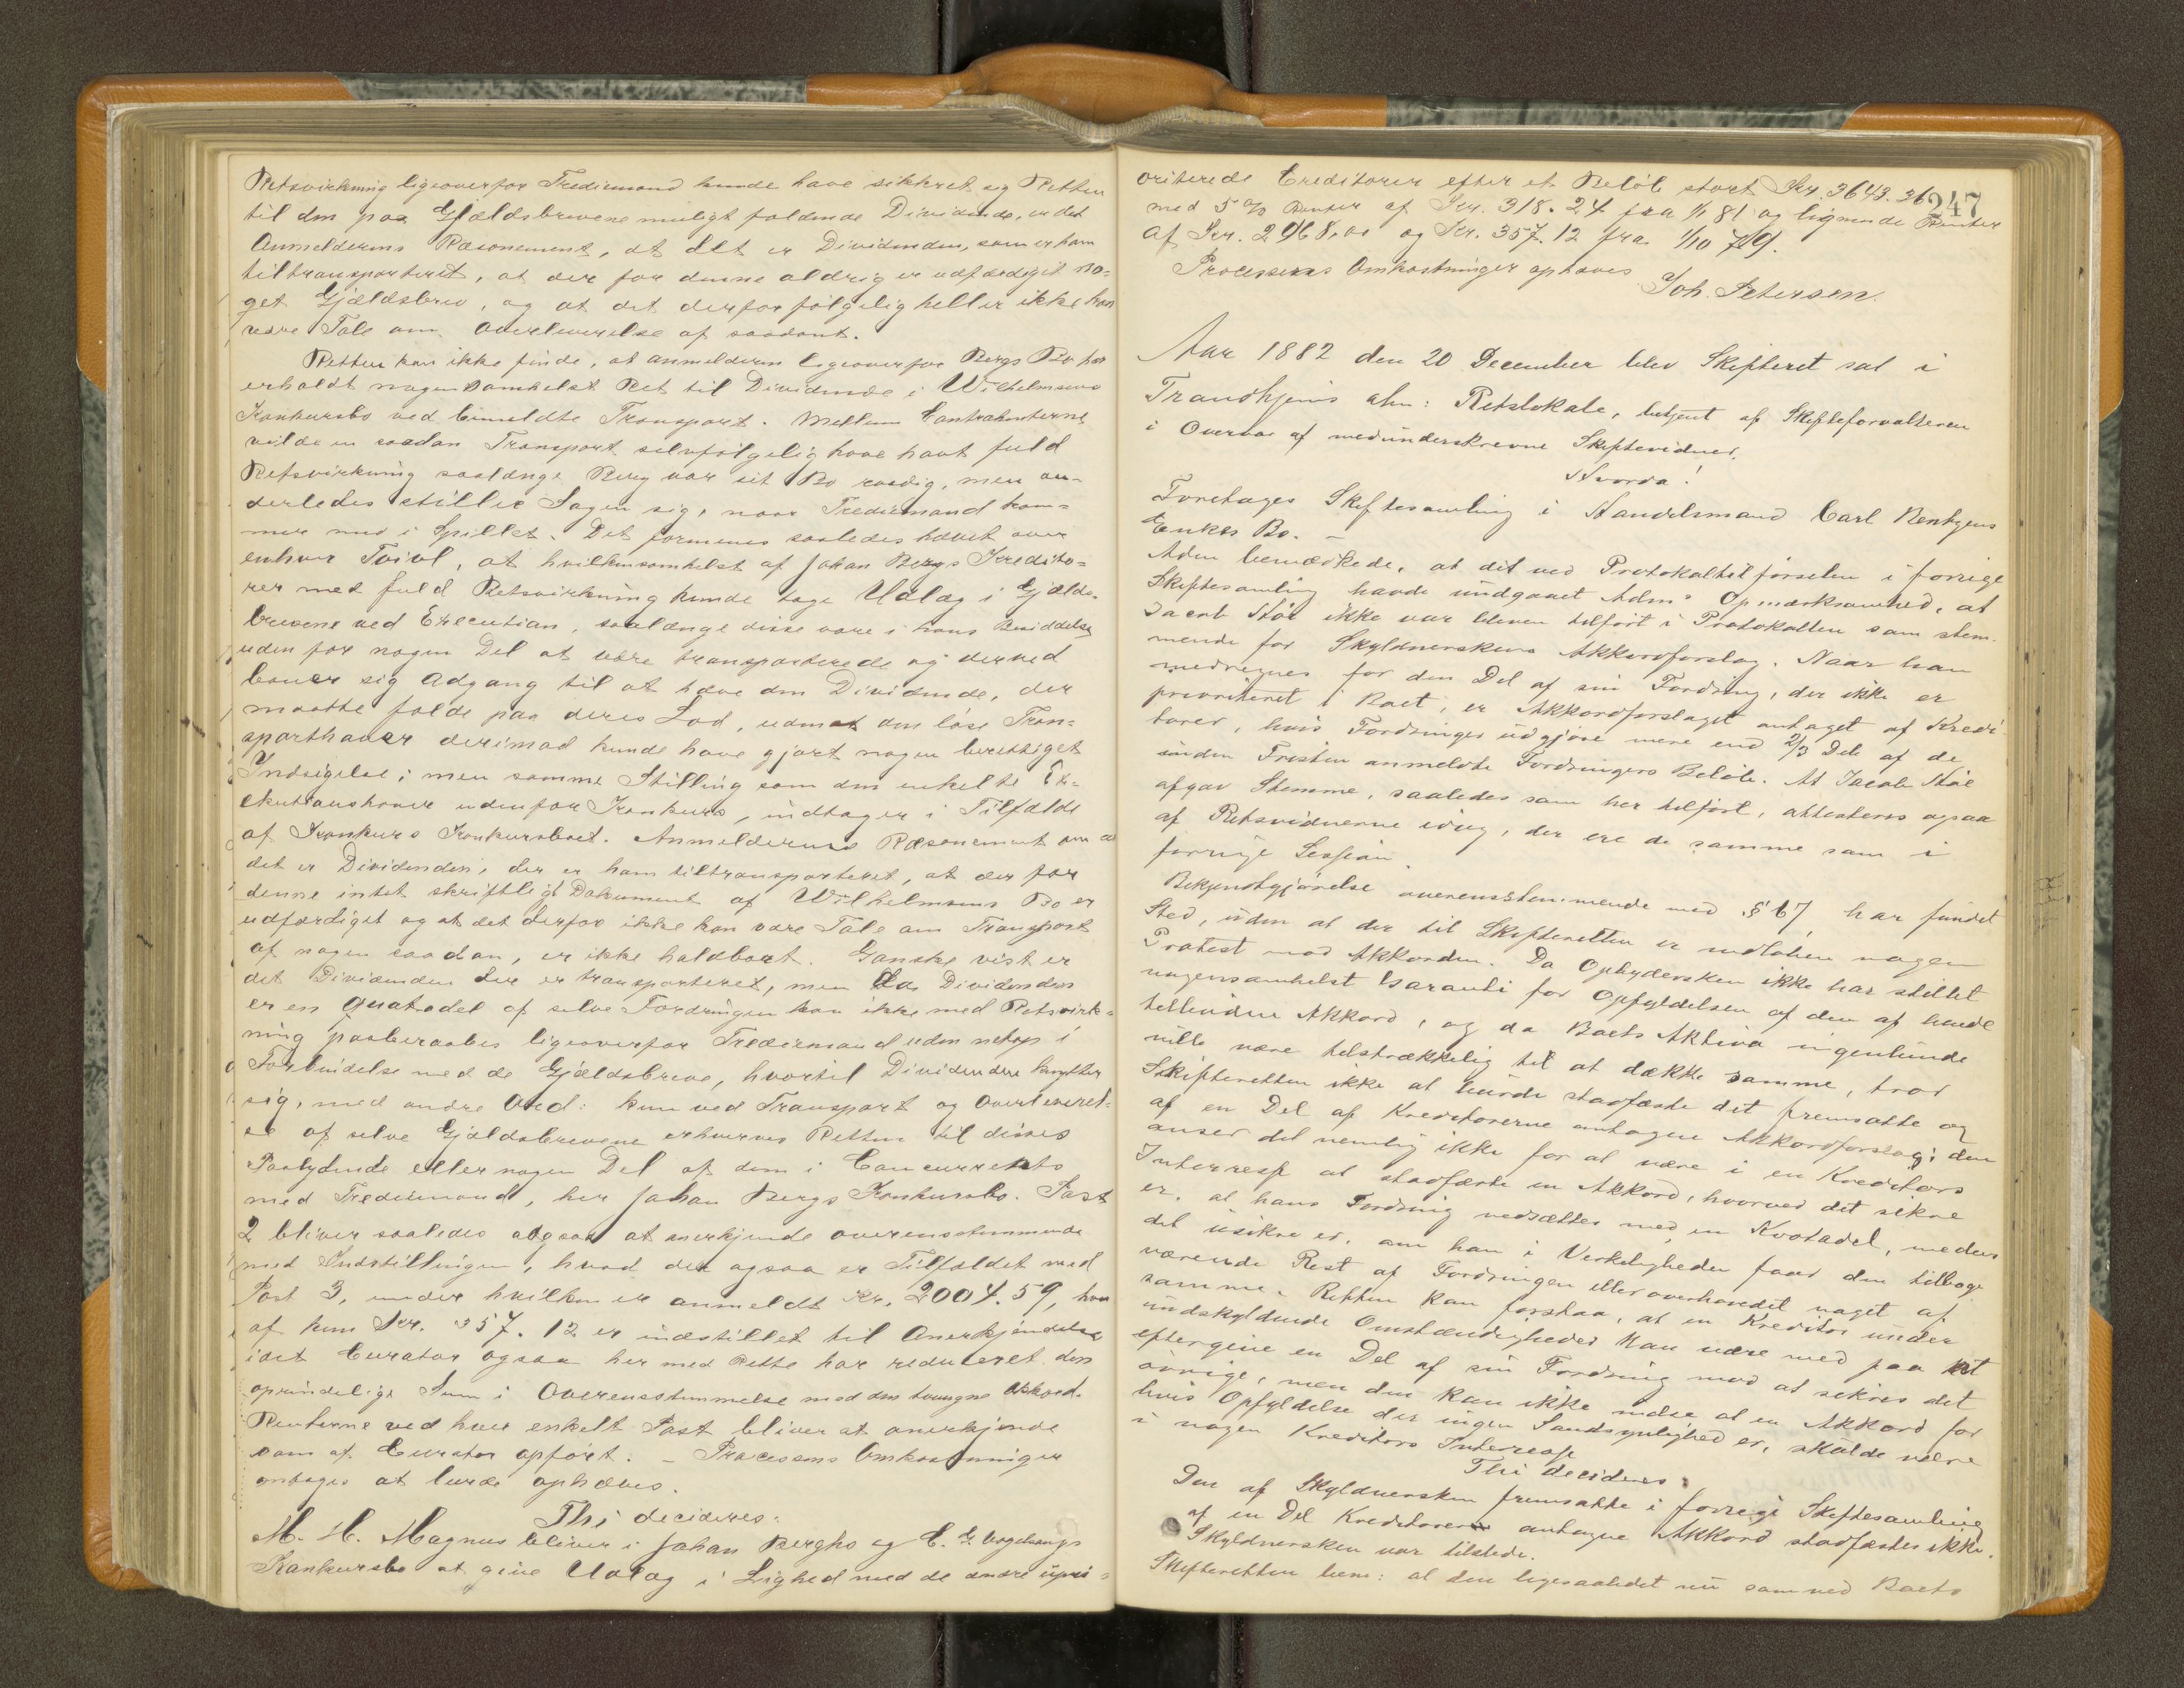 Retsvirkning ligeoverfor Trediemand kunde have sikkret sig Retten
til den paa Gjældsbrevene muligt faldende Dividende, er det
Anmelderens Ræsonement, at det er Dividenden, som er ham
tiltransporteret, at der for denne aldrig er udfærdiget no-
get Gjældsbrev, og at det derfor følgelig heller ikke kan
være Tale om Overleverelse af saadant.
Retten kan ikke finde, at anmelderen ligeoverfor Bergs Bo har
erholdt nogensomhelst Ret til Dividende i Wilhelmsens
Konkursbo ved bemeldte Transport. Mellem Contrahenterne
vilde en saadan Transport selvfølgelig have havt fuld
Retsvirkning saalænge Berg var sit Bo raadig, men an-
derledes stiller Sagen sig, naar Trediemand kom-
mer med i Spillet. Det formenes saaledes hævet over
enhver Tvivl, at hvilkensomhelst af Johan Bergs Kredito-
rer med fuld Retsvirkning kunde tage Udlæg i Gjælds-
brevene ved Execution, saalænge disse vare i hans Besiddelse
uden for nogen Del at være transporterede og derved
baner sig Adgang til at hæve den Dividende, der
maatte falde paa deres Lod, uden at den løse Tran-
sporthaver derimod kunde have gjort nogen berettiget
Indsigelse; men samme Stilling som den enkelte Ex-
ekutionshaver udenfor Konkurs, indtager i Tilfælde
af Konkurs Konkursboet. Anmelderens Ræsonement om at
det er Dividenden, der er ham tiltransporteret, at der for
denne intet skriftligt Dokument af Wilhelmsens Bo er
udfærdiget og at det derfor ikke kan være Tale om Transport
af nogen saadan, er ikke holdbart. Ganske vist er
det Dividenden der er transporteret, men da Dividenden
er en Quotadel af selve Fordringen kan ikke med Retsvirk-
ning paaberaabes ligeoverfor Trediemand uden netop i
Forbindelse med de Gjældsbreve, hvortil Dividenden knytter
sig, med andre Ord: kun ved Transport og Overleverel-
se af selve Gjældsbrevene erhverves Retten til disses
Paalydende eller nogen Del af dem i Concurrents
med Trediemand, her Johan Bergs Konkursbo. Post
2 bliver saaledes ogsaa at anerkjende overensstemmende
med Indstillingen, hvad der ogsaa er Tilfældet med
Post 3, under hvilken er anmeldt Kr. 2004.59, hvor
af kun Kr. 357.12 er indstillet til Anerkjendelse
idet Curator ogsaa her med Rette har reduceret den
oprindelige Sum i Overensstemmelse med den tvungne Akkord.
Renterne ved hver enkelt Post bliver at anerkjende
som af Curator opført. – Processens Omkostninger
antages at burde ophæves.
Thi decideres:
M. H. Magnus bliver i Johan Bergs og C. G. Vogelsangs
Konkursbo at give Udlæg i Lighed med de andre upri-
247
oriterede Creditorer efter et Beløb stort Kr. 3643.36
med 5 % Renter af Kr. 318.24 fra 1/1 81 og lignende Renter
af Kr. 2968,00 og Kr. 357.12 fra 1/10 79.
Processens Omkostninger ophæves
Joh. Petersen.
Aar 1882 den 20 December blev Skifteret sat i
Trondhjems alm: Retslokale, betjent af Skifteforvalteren
i Overvær af medunderskrevne Skiftevidner.
Hvorda!
Foretages Skiftesamling i Handelsmand Carl
Enkes Bo. –
Adm bemærkede, at det ved Protokoltilførselen i forrige
Skiftesamling havde undgaaet Adms Opmærksomhed, at
Jacob ikke var bleven tilført i Protokollen som stem-
mende for Skyldnerskens Akkordforslag. Naar han
medregnes for den Del af sin Fordring, der ikke er
prioriteret i Boet, er Akkordforslaget antaget af Kredi-
torer, hvis Fordringer udgjøre mere end 2/3 Dele af de
inden Fristen anmeldte Fordringers Beløb. At Jacob
afgav Stemme, saaledes som her tilført, attesteres ogsaa
af Retsvidnerne idag, der ere de samme som i
forrige Session.
Bekjendtgjørelse overensstemmende med § 67 har fundet
Sted, uden at der til Skifteretten er indløben nogen
Protest mod Akkorden. Da Opbydersken ikke har stillet
nogensomhelst Garanti for Opfyldelsen af den af hende
tilbudne Akkord, og da Boets Aktiva ingenlunde
ville være tilstrækkelig til at dække samme, tror
Skifteretten ikke at burde stadfæste det fremsatte og
af en Del af Kreditorerne antagne Akkordforslag; den
anser det nemlig ikke for at være i en Kreditors
Interesse at stadfæste en Akkord, hvorved det sikre
er, at hans Fordring nedsættes med en Kvotadel, medens
det usikre er, om han i Virkeligheden faar den tilbage-
værende Rest af Fordringen eller overhovedet noget af
samme. Retten kan forstaa, at en Kreditor under
undskyldende Omstændigheder kan være med paa at
eftergive en Del af sin Fordring mod at sikres det
øvrige, men den kan ikke indse at en Akkord for
hvis Opfyldelse der ingen Sandsynlighed er, skulde være
i nogen Kreditors Interesse
Thi decideres:
Den af Skyldnersken fremsatte i forrige Skiftesamling
af en Del Kreditorer antagne Akkord stadfæstes ikke.
Skyldnersken var tilstede.
Skifteretten bem: at den ligesaalidet nu som ved Boets